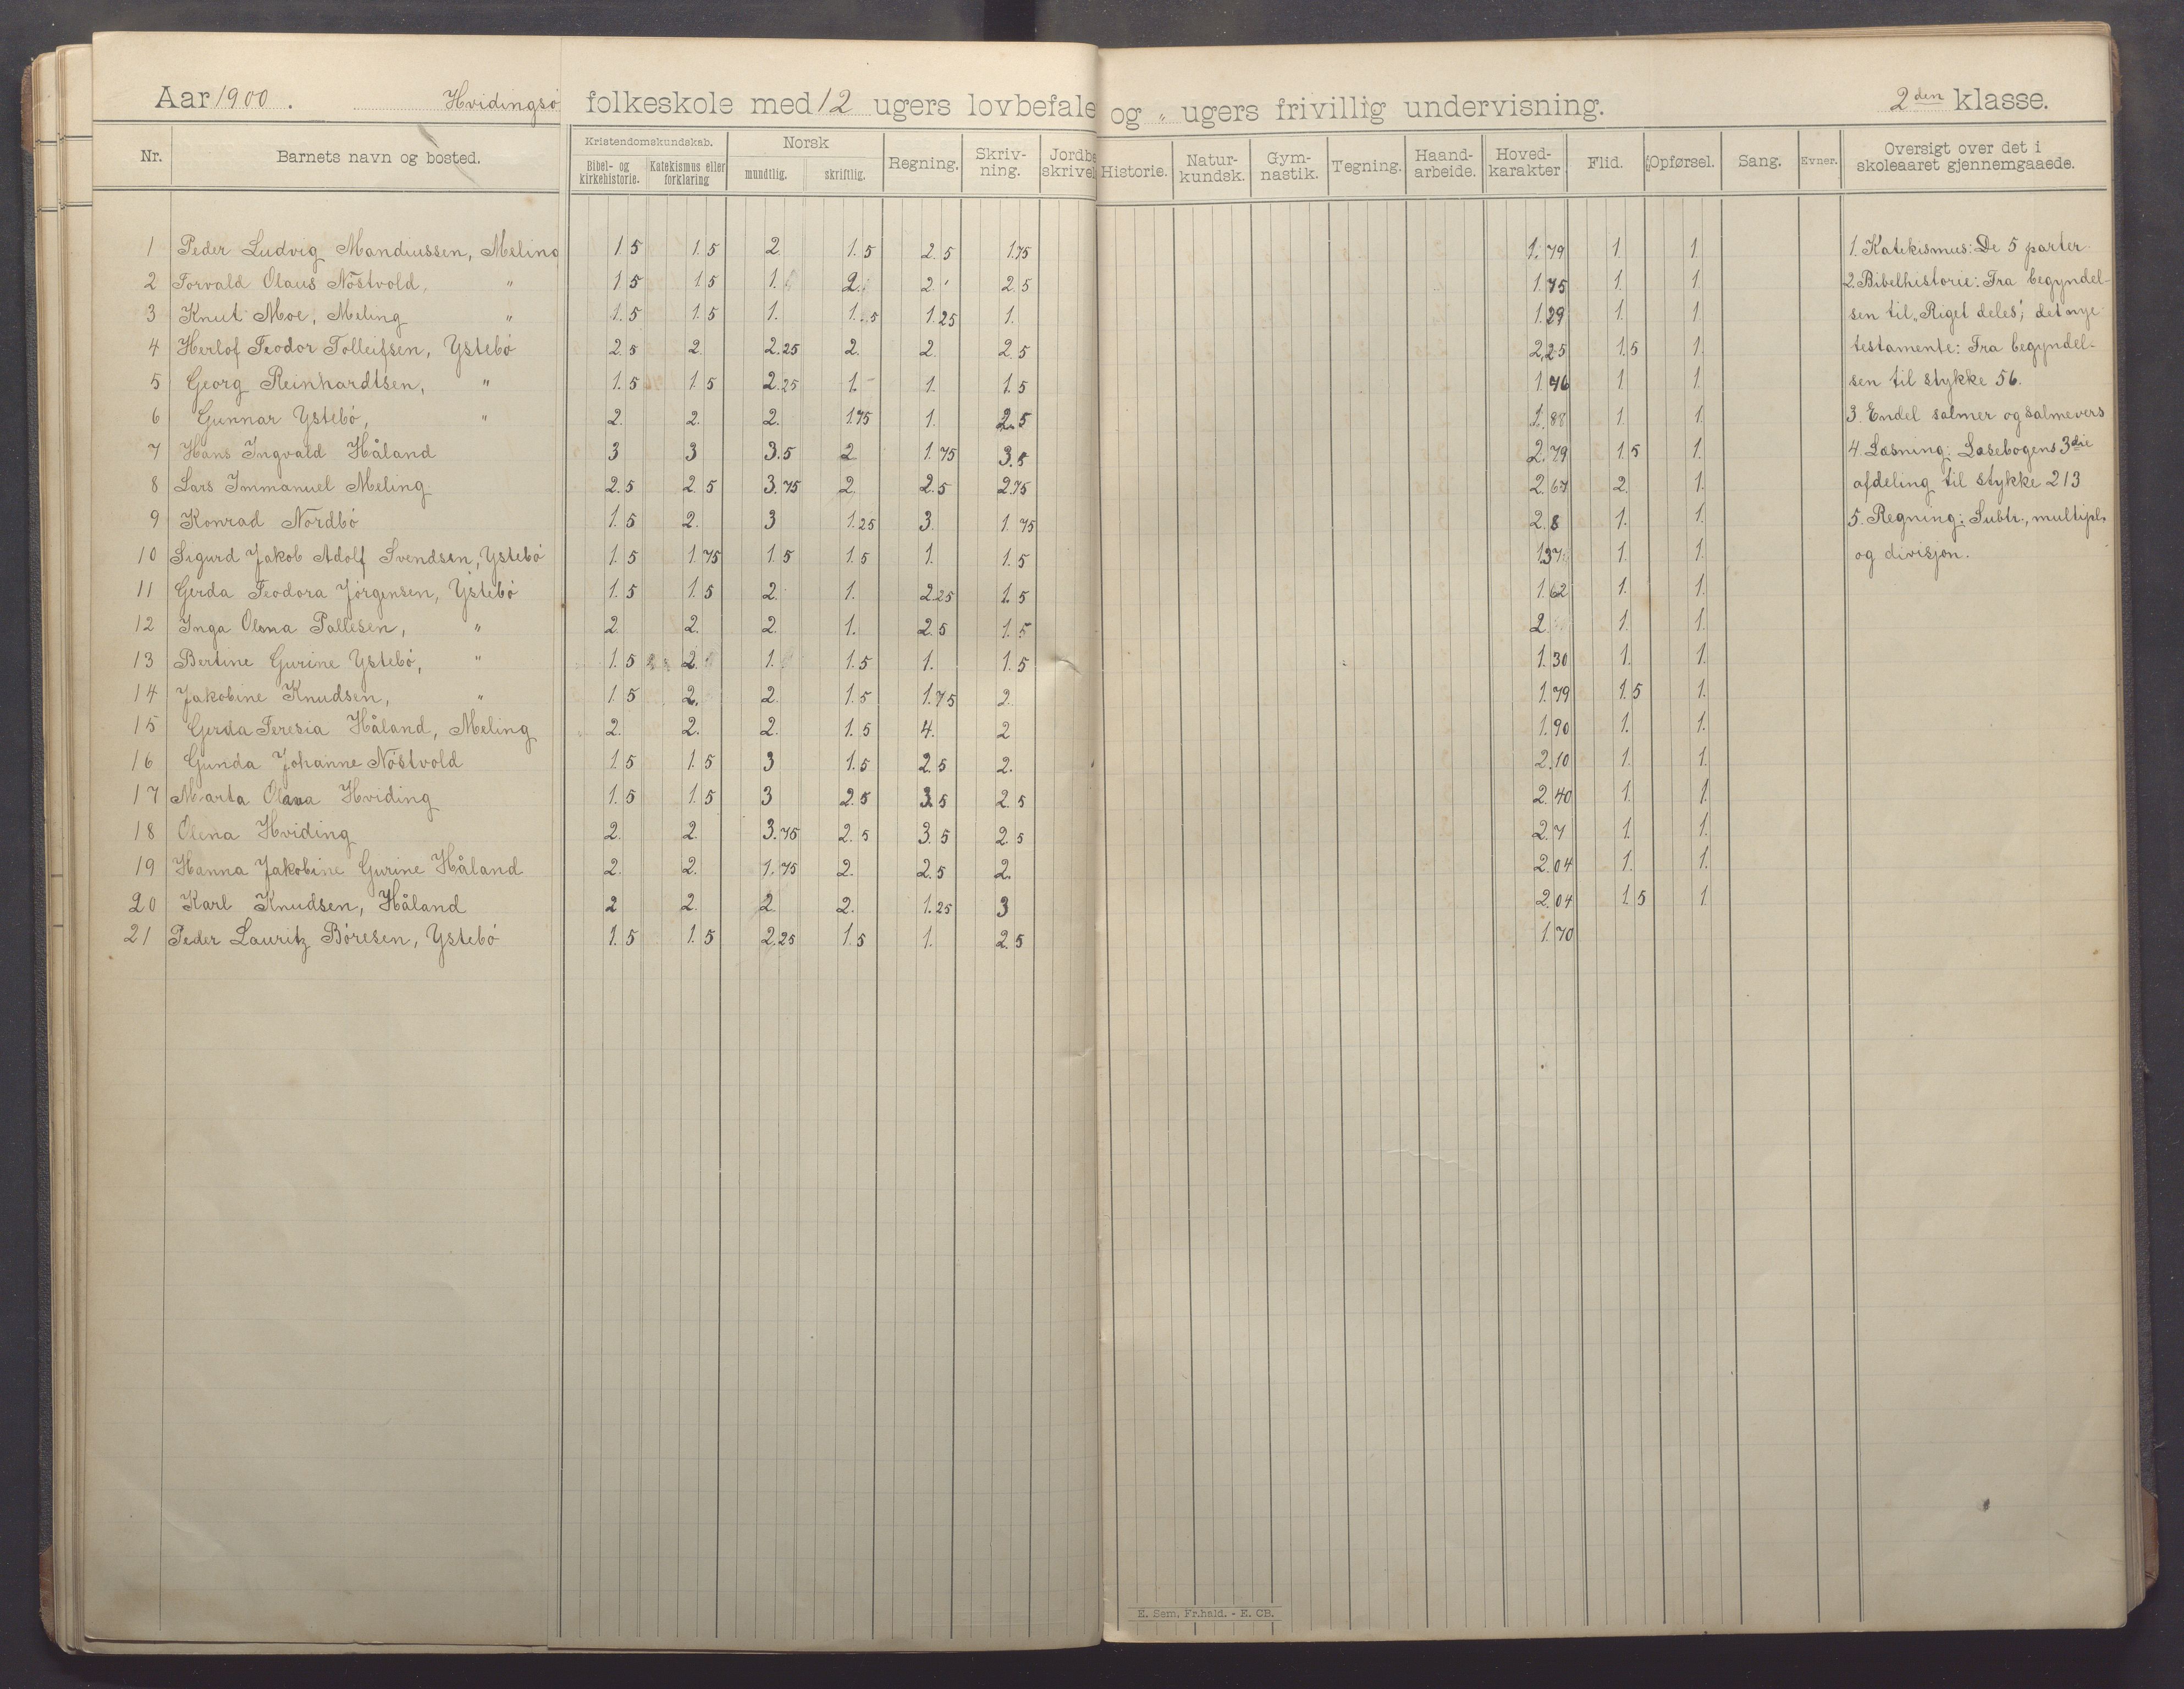 Aar 1900. Hvidingsö folkeskole med 12 ugers lovbefale og „ ugers frivillig undervisning. 2den klasse.
Nr. Barnets navn og bosted. Kristendomskundskab. Bibel- og kirkehistorie. Katekismus eller forklaring Norsk mundtlig. skriftlig. Regning. Skriv-ning. Jordbe skrivel Historie. Natur-kundsk. Gym-nastik. Tegning. Haand-arbeide. Hoved-karakter Flid. Opførsel. Sang. Evner. Oversigt over det i skoleaaret gjennemgaaede.
1 Peder Ludvig Mandiussen, Meling 1 5 1.5 2 1.5 2.5 1.75 1.79 1. 1. 1. Katekismus: De 5 parter
2 Torvald Olaus Nöstvold, „ 1 5 1 5 1. 2. 2. 2 5 1.75 1. 1. 2. Bibelhistorie: Fra begyndel-
3 Knut Moe, Meling „ 1.5 1.5 1. 1.5 1.25 1. 1.29 1. 1. sen til „Riget deles“; det nye
4 Herlof Teodor Tolleifsen, Ystebö 2.5 2. 2.25 2. 2. 2.5 2.25 1.5 1. testamente: Fra begyndel-
5 Georg Reinhardtsen, „ 1.5 1 5 2.25 1.- 1. 1.5 1.46 1. 1. sen til stykke 56.
6 Gunnar Ystebö, „ 2. 2. 2. 1.75 1. 2.5 1.88 1. 1. 3. Endel salmer og salmevers
7 Hans Ingvald Håland 3 3 3.5 2 1.75 3.5 2.79 1 5 1. 4. Læsning: Læsebogens 3die
8 Lars Immanuel Meling 2.5 2 5 3.75 2. 2.5 2.75 2.67 2. 1. afdeling til stykke 213
9 Konrad Nordbö 1.5 2. 3 1.25 3. 1.75 2.8 1. 1. 5. Regning: Subtr., multipl,
10 Sigurd Jakob Adolf Svendsen, Ystebö 1.5 1.75 1.5 1.5 1. 1.5 1.37 1. 1. og divisjon.
11 Gerda Teodora Jörgensen, Ystebö 1.5 1.5 2. 1. 2.25 1.5 1.62 1. 1.
12 Inga Olena Pallesen, „ 2. 2. 2. 1. 2.5 1.5 2. 1. 1.
13 Bertine Gurine Ystebö, „ 1.5 2. 1. 1.5 1. 1.5 1.30 1. 1.
14 Jakobine Knudsen, „ 1.5 2. 2. 1.5 1.75 2. 1.79 1.5 1.
15 Gerda Teresia Håland, Meling 2. 2. 2. 1.5 4. 2 1.90 1. 1.
16 Gunda Johanne Nöstvold 1.5 1.5 3 1.5 2.5 2. 2.10 1. 1.
17 Marta Olava Hviding 1.5 1.5 3 2.5 3.5 2.5 2.40 1. 1.
18 Olena Hviding 2. 2. 3.75 2.5 3.5 2.5 2.7 1. 1.
19 Hanna Jakobine Gurine Håland 2. 2. 1.75 2. 2.5 2. 2.04 1. 1.
20 Karl Knudsen, Håland 2 2. 2. 2. 1.25 3 2.04 1.5 1
21 Peder Lauritz Böresen, Ystebö 1.5 1.5 2.25 1.5 1. 2.5 1.70
E. Sem, Fr.hald. - E. CB.